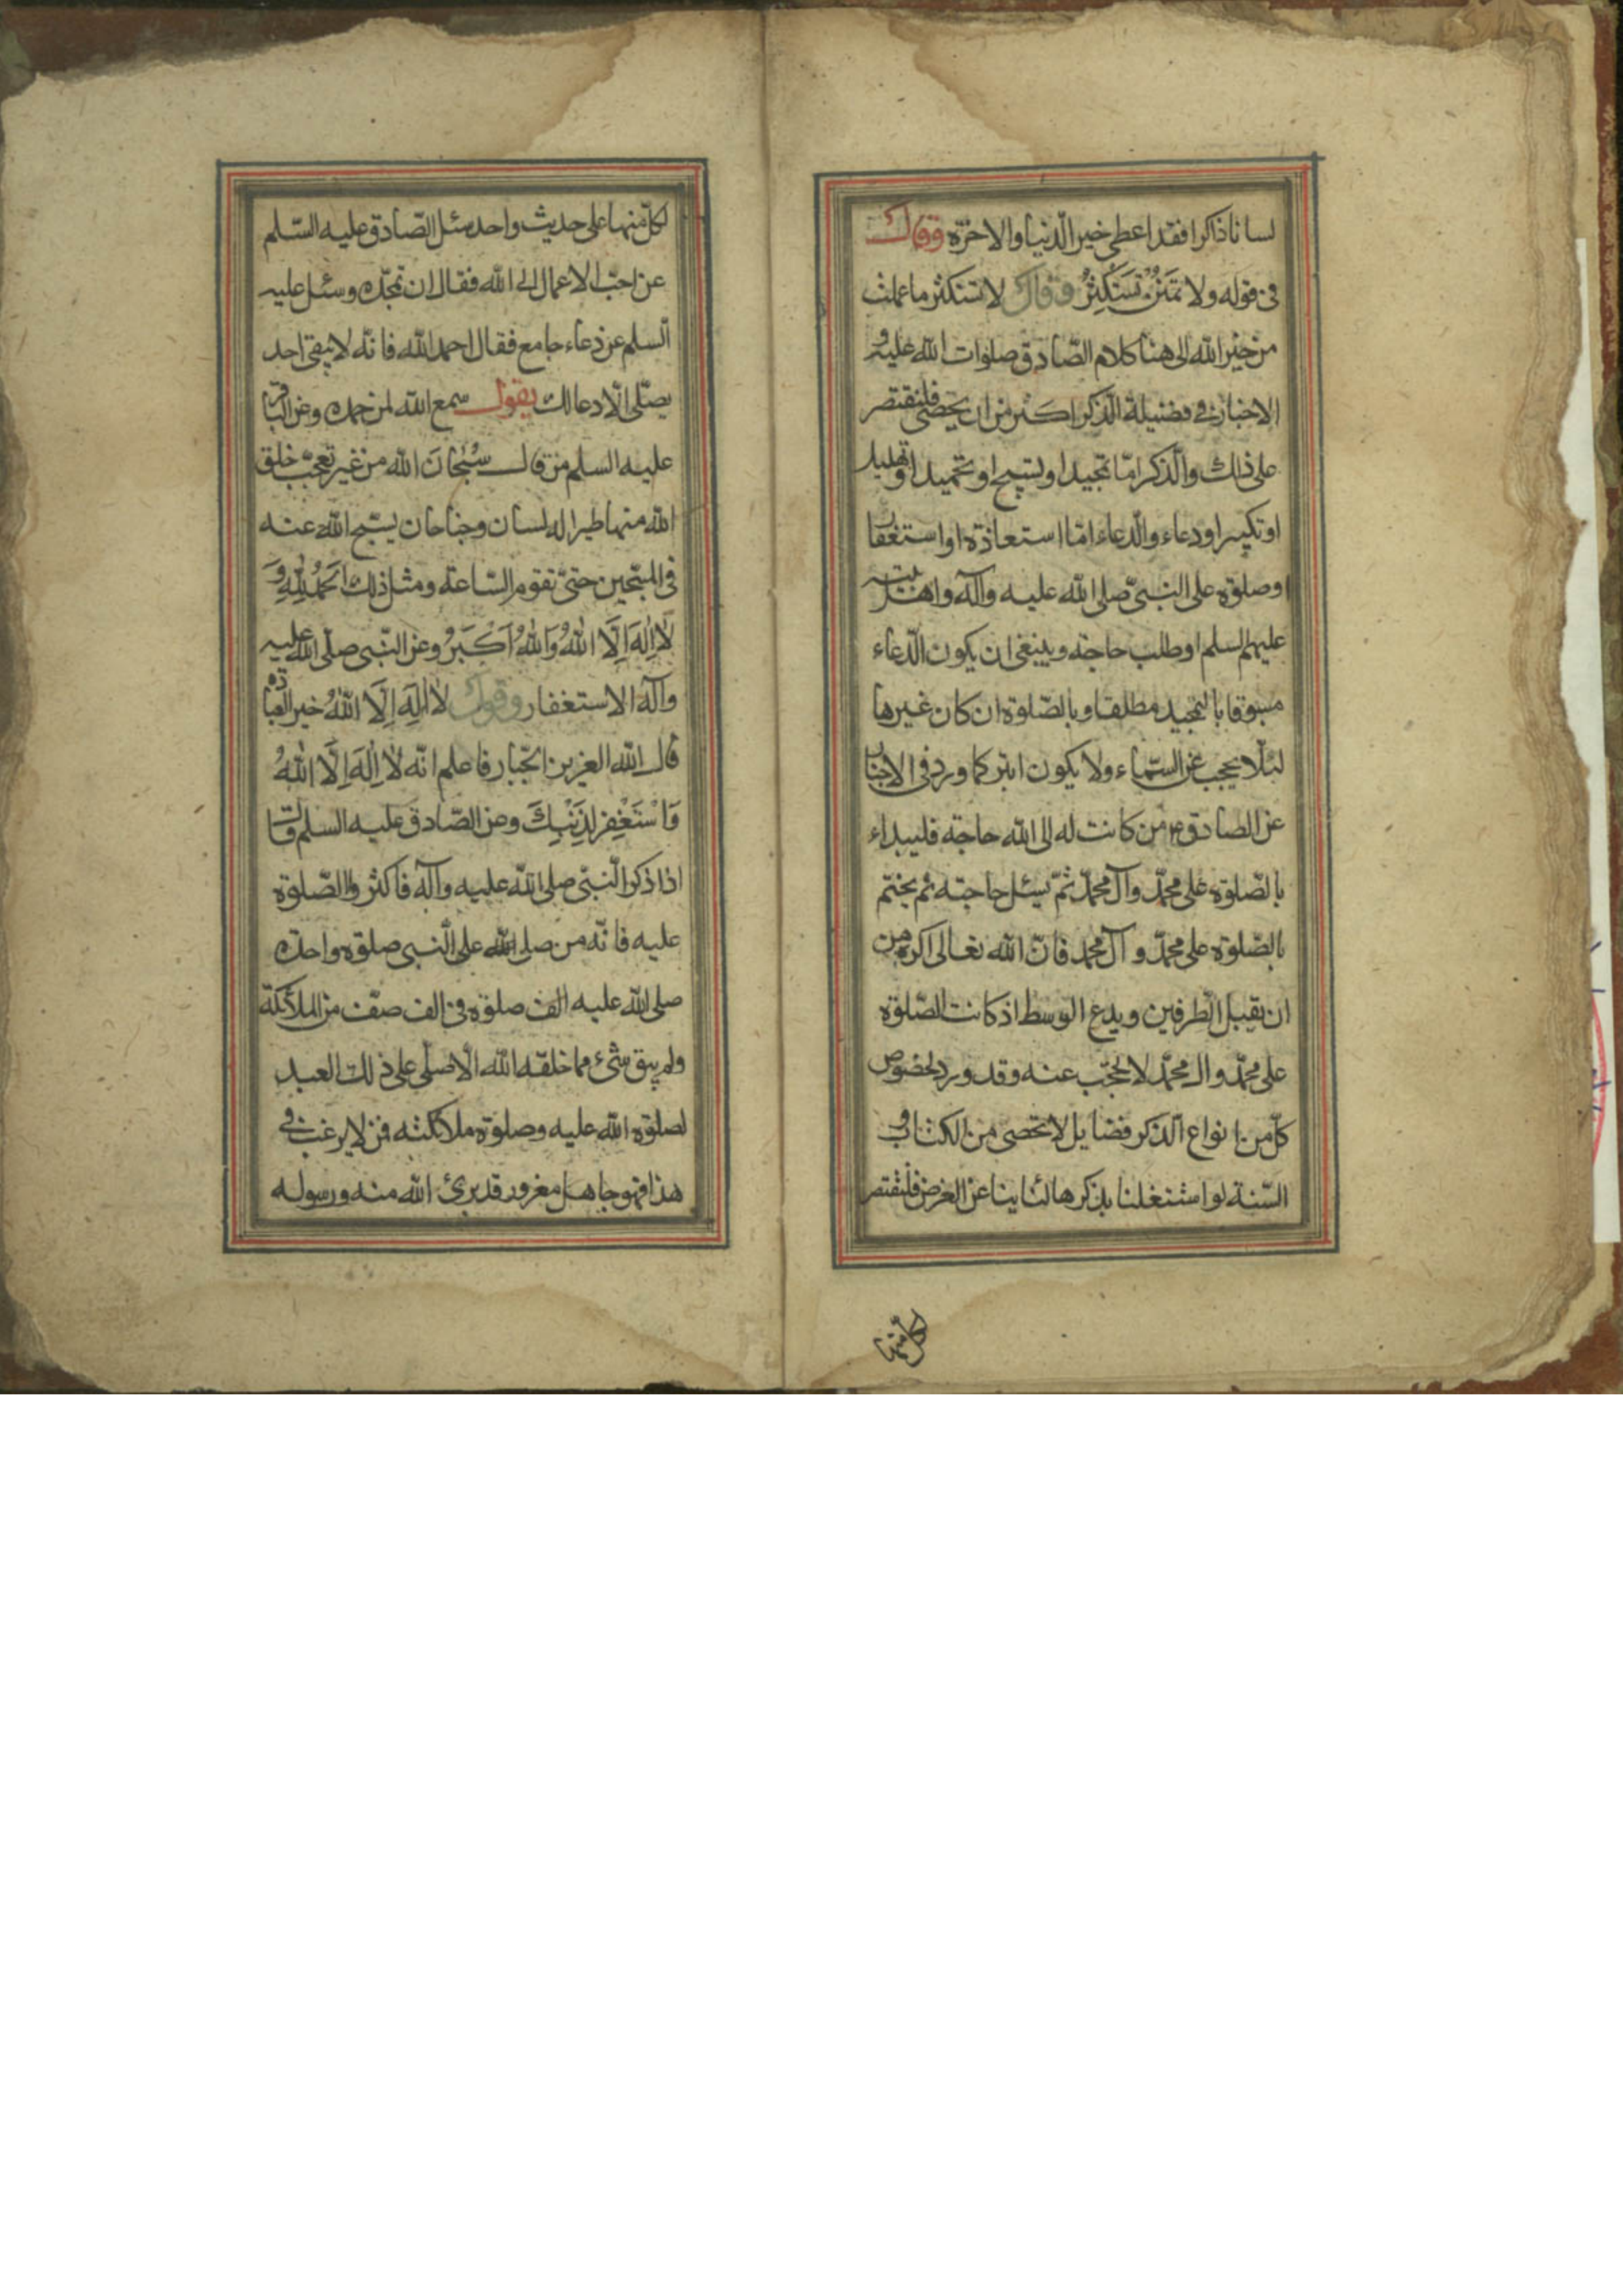 لسانا ذاكرا فقد اعطى خير الدّنيا والاخرة وقال
فى قوله ولا تَمْنُنْ تَسْتَكْثِرُ وقال لا تستكثر ما عملت
من خير الله الى هنا كلام الصّادق صلوات الله عليه و
الاخبار فى فضيلة الذّكر اكثر من ان يحصى فلنقتصر
على ذلك والذّكر امّا تمجيد او تسبيح او تحميد او تهليل
او تكبير او دعاء والدّعاء امّا استعاذة او استغفار
او صلوة على النّبىّ صلى الله عليه وآله واهل بيته
عليهم السلم او طلب حاجة وينبغى ان يكون الدّعاء
مسبوقا بالتمجيد مطلقا وبالصّلوة ان كان غيرها
لئلّا يحجب عن السّماء ولا يكون ابتر كما ورد فى الاخبار
عن الصادق ع من كانت له الى الله حاجة فليبداء
بالصّلوة على محمّد وآل محمّد ثمّ يسئل حاجته ثم يختم
بالصّلوة على محمّد وآل محمد فانّ الله تعالى اكرم من
ان يقبل الطّرفين ويدع الوسط اذ كانت الصّلوة
على محمّد وال محمّد لا تحجب عنه وقد ورد لخصوص
كلّ من انواع الذّكر فضايل لا تحصى من الكتاب و
السّنة لو اشتغلنا بذكرها لتناينا عن الغرض فلنقتصر
لكلّ منها
لكلّ منها على حديث واحد سئل الصّادق عليه السّلم
عن احبّ الاعمال الى الله فقال ان تمجّده وسئل عليه
السلم عن دعاء جامع فقال احمد الله فانّه لا يبقى احد
يصلّى الّا دعا لك يقول سمع الله لمن حمده وعن الباقر
عليه السلم من قال سُبْحَانَ الله من غير تعجّب خلق
الله منها طيرا له لسان وجناحان يسبّح الله عنه
فى المسبّحين حتىّ تقوم السّاعة ومثل ذلك اَلْحَمْدُ لِلّٰهِ وَ
لَا اِلٰهَ اِلَّا اللهُ وَاللهُ اَكْبَرُ وعن النّبى صلّى الله عليه
وآله الاستغفار وقول لَا اِلٰهَ اِلَّا اللهُ خير العبادة
قال الله العزيز الجبّار فاعلم انّه لَا اِلٰهَ اِلَّا اللهُ
وَاسْتَغْفِرْ لِذَنْبِكَ وعن الصّادق عليه السلم قال
اذا ذكر النّبىّ صلى الله عليه وآله فاكثروا الصّلوة
عليه فانّه من صلى الله على النّبى صلوة واحدة
صلى الله عليه الف صلوة فى الف صفّ من الملائكة
ولم يبق شىء مما خلقه الله الّا صلّى على ذلك العبد
لصلوة الله عليه وصلوة ملائكته فمن لا يرغب فى
هذا فهو جاهل مغرور قد برئ الله منه ورسوله